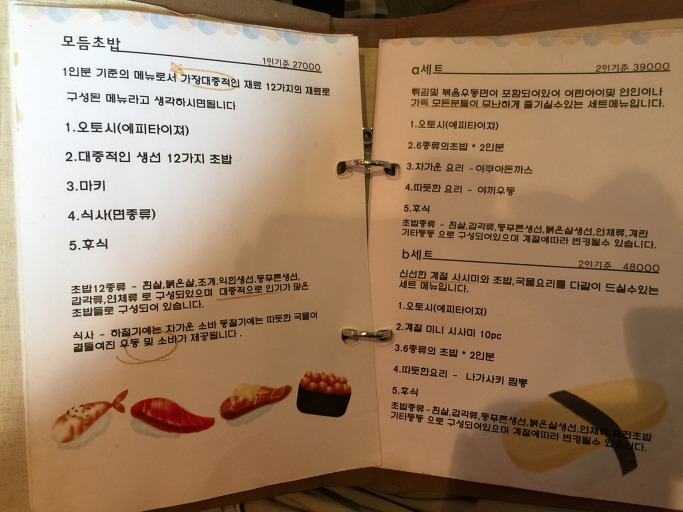 모듬초밥
1인기준 27000
1인분 기준의 메뉴로서 가장대중적인 재료 12가지의 재료로
구성된 메뉴라고 생각하시면됩니다
1.오토시(에피타이져)
2.대중적인 생선 12가지 초밥
3.마키
4.식사(면종류)
5.후식
초밥12종류 - 흰살,붉은살,조개,익힌생선,등푸른생선,
갑각류,연체류 로 구성되있으며 대중적으로 인기가 많은
초밥들로 구성되어 있습니다.
식사 - 하절기에는 차가운 소바 동절기에는 따듯한 국물이
곁들여진 우동 및 소바가 제공됩니다 .
a세트
2인기준 39000
튀김및 볶음우동면이 포함되어있어 어린아이및 연인이나
가족 모든분들이 무난하게 즐기실수있는 세트메뉴입니다.
1.오토시(에피타이져)
2.6종류의초밥 * 2인분
3.차가운 요리 - 아쿠아돈까스
4.따듯한 요리 - 야끼우동
5.후식
초밥종류 - 흰살,갑각류,등푸른생선,붉은살생선,연체류,계란
기타등등 으로 구성되어있으며 계절에따라 변경될수 있습니다.
b세트
2인기준 48000
신선한 계절 사시미와 초밥,국물요리를 다같이 드실수있는
세트 메뉴입니다.
1.오토시(에피타이져)
2.계절 미니 시사미 10pc
3.6종류의 초밥 * 2인분
4.따듯한요리 - 나가사키 짬뽕
5.후식
초밥종류 -흰살,갑각류,등푸른생선,붉은살생선,연체류
기타등등 으로 구성되어있으며 계절에따라 변경될수 있습니다.